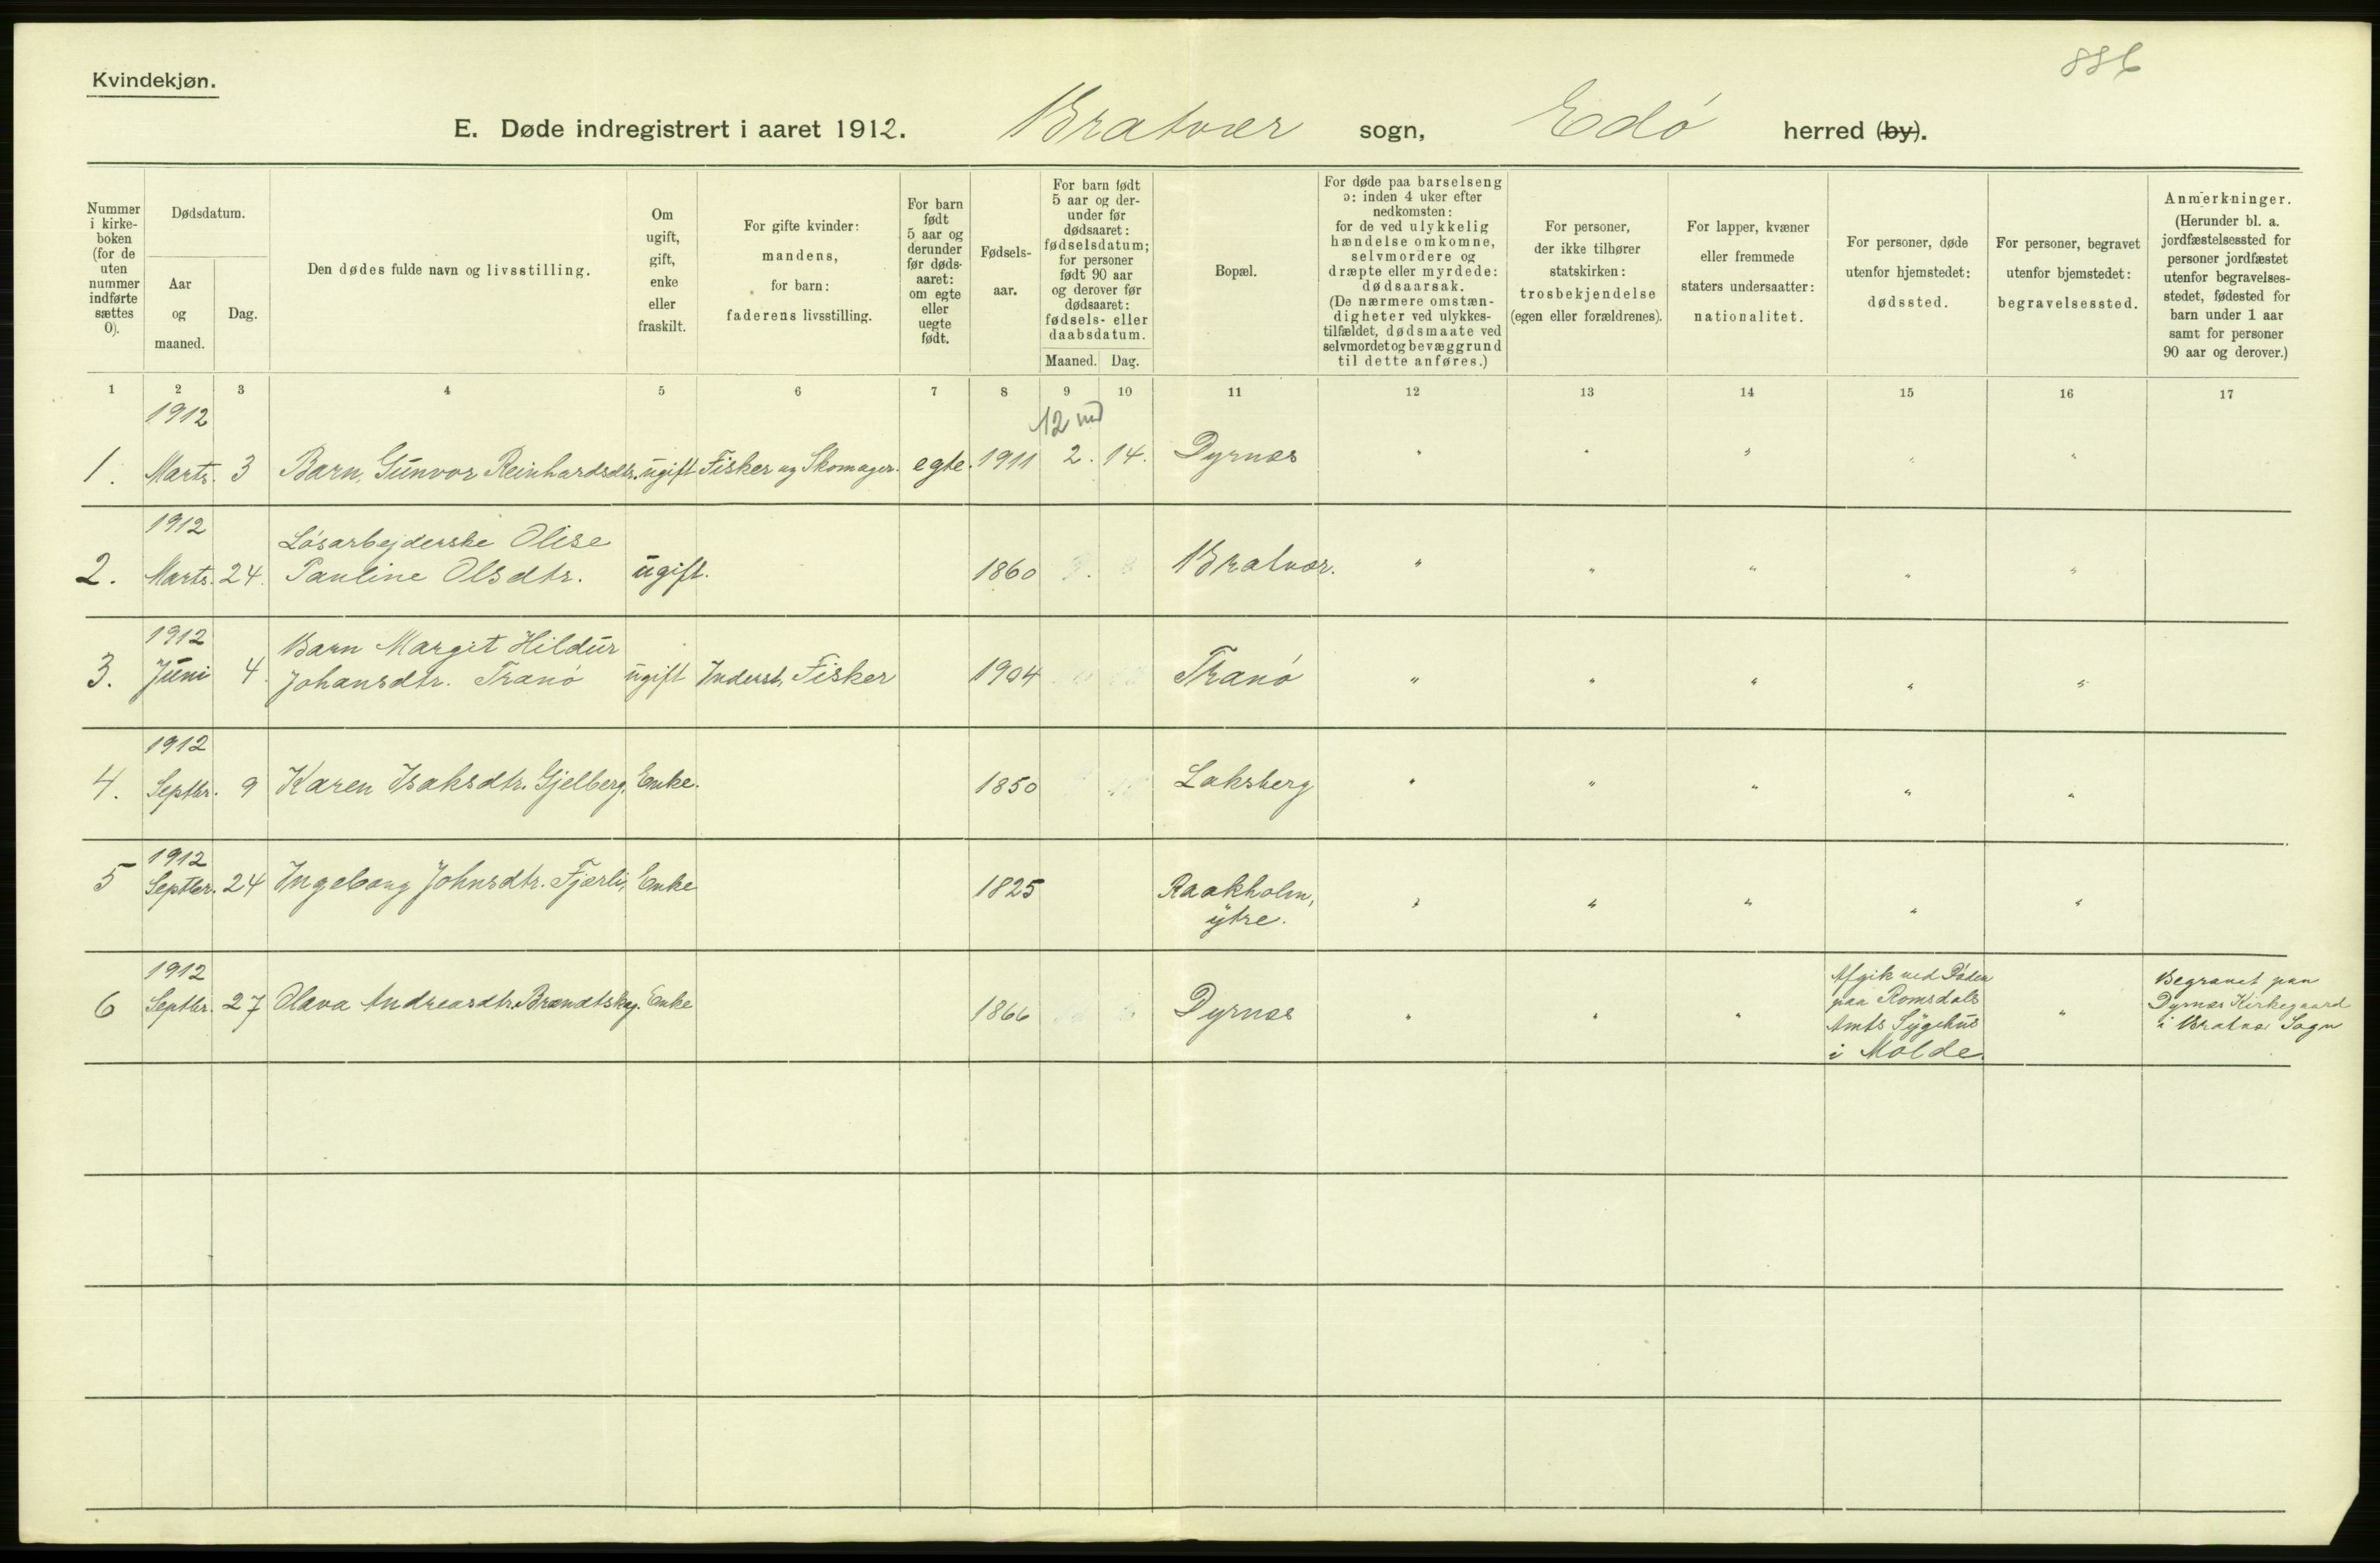 886
Kvindekjøn.
E. Døde indregistrert i aaret 1912. Bratvær sogn, Edö herred (by).
Nummer i kirke-boken (for de uten nummer indførte sættes 0).
Dødsdatum.
Aar og maaned.
Dag.
Den dødes fulde navn og livsstilling.
Om ugift, gift, enke eller fraskilt.
For gifte kvinder: mandens, for barn: faderens livsstilling.
For barn født 5 aar og derunder før døds-aaret: om egte eller uegte født.
Fødsels-aar.
For barn født 5 aar og der-under før dødsaaret: fødselsdatum; for personer født 90 aar og derover før dødsaaret: fødsels- eller daabsdatum.
Maaned. Dag.
Bopæl.
For døde paa barselseng ɔ: inden 4 uker efter nedkomsten: for de ved ulykkelig hændelse omkomne, selvmordere og dræpte eller myrdede: dødsaarsak. (De nærmere omstæn-digheter ved ulykkes-tilfældet, dødsmaate ved selvmordet og bevæggrund til dette anføres.)
For personer, der ikke tilhører statskirken: trosbekjendelse (egen eller forældrenes).
For lapper, kvæner eller fremmede staters undersaatter: nationalitet.
For personer, døde utenfor hjemstedet: dødssted.
For personer, begravet utenfor bjemstedet: begravelsessted.
Anmerkninger. (Herunder bl. a. jordfæstelsessted for personer jordfæstet utenfor begravelses-stedet, fødested for barn under 1 aar samt for personer 90 aar og derover.)
1 2 3 4 5 6 7 8 9 10 11 12 13 14 15 16 17
1912 12 md
1. Marts. 3 Barn, Gunvor Reinhardsdtr. ugift Fisker og Skomager. egte. 1911 2. 14. Dyrnes " " " " "
1912 Løsarbejderske Olise
2. Marts. 24. Pauline Olsdtr. ugift. 1860 Bratvær. " " " " "
1912 Barn Margit Hildur
3. Juni 4. Johansdtr. Tranö ugift Inderst, Fisker 1904 Tranö " " " " "
1912
4. Septbr. 9 Karen Isaksdtr. Gjelberg, Enke. 1850 Laksberg " " " " "
1912
5 Septbr. 24 Ingeborg Johnsdtr. Fjærli, Enke 1825 Raakholm, ytre. " " " " "
1912
6 Septbr. 27 Olava Andreasdtr. Brandtskg. Enke 1866 Dyrnes " " "
Afgik ved Döden
paa Romsdals
Amts Sygehus
i Molde.
"
Begravet paa
Dyrnes Kirkegaard
i Bratvær Sogn